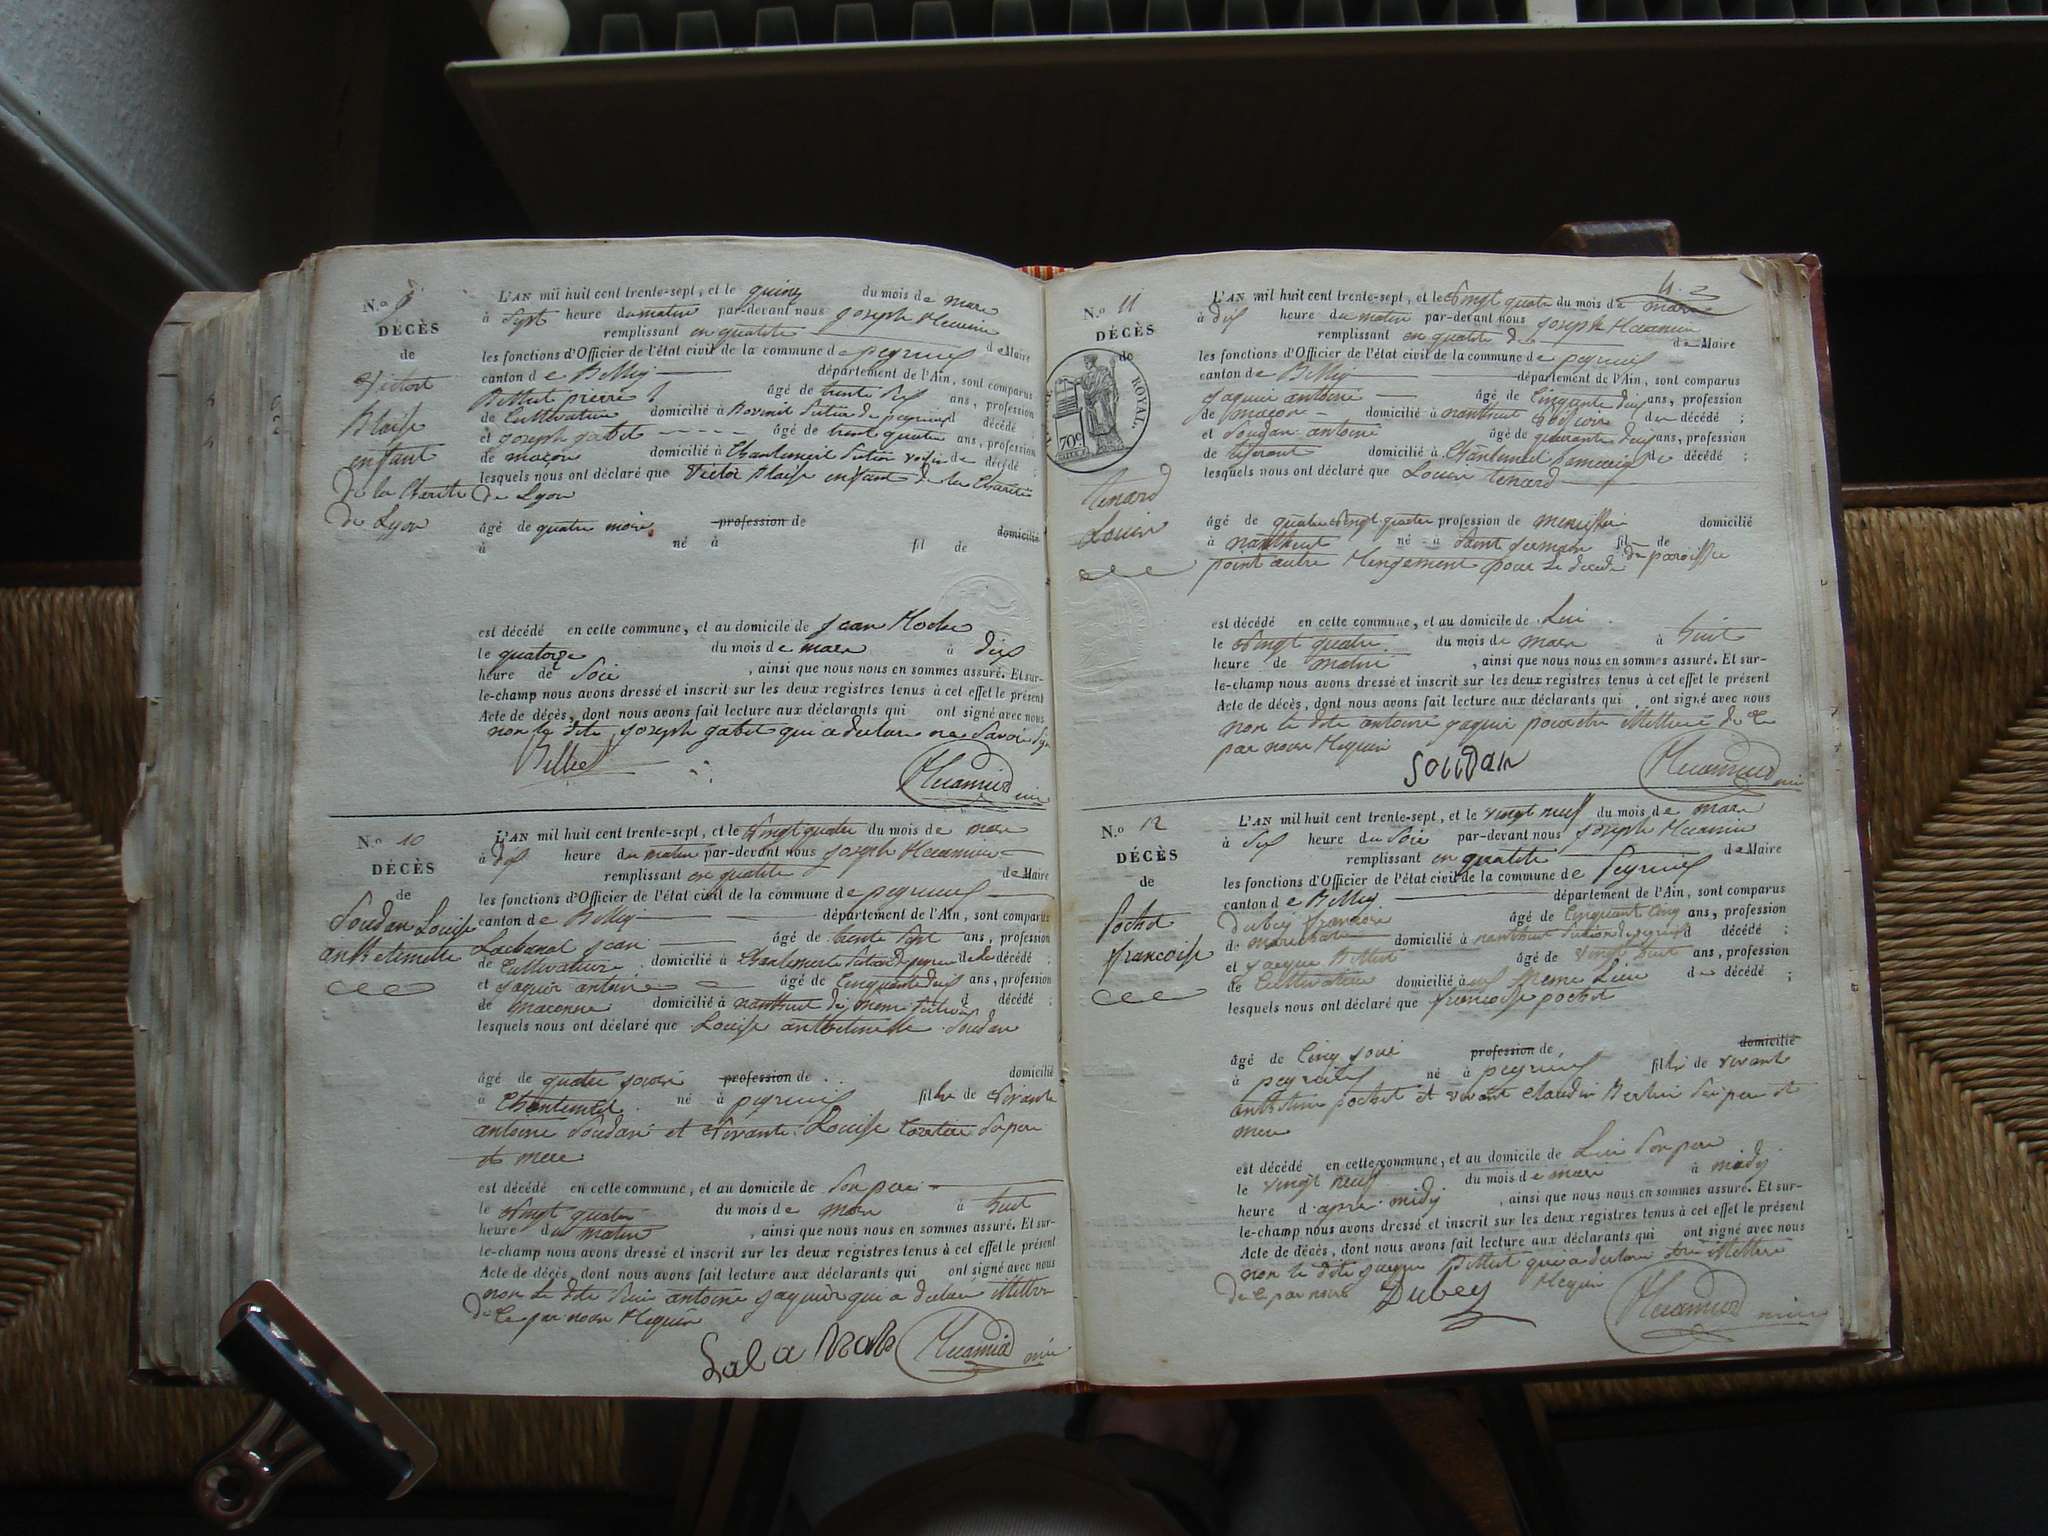 N.o 9
DÉCÈS
de
Victor
Blaise
enfant
de la Charité
de Lyon
L'AN mil huit cent trente-sept, et le quinze du mois de mars
à sept heure du matin par-devant nous joseph
remplissant en qualité de Maire
les fonctions d'Officier de l'état civil de la commune de peyrieu
canton de Belley département de l'Ain, sont comparus
Billiet pierre âgé de trente six ans, profession
de Cultivateur domicilié à décédé
et joseph gabet âgé de trent quatre ans, profession
de maçon domicilié à Chantemerle voisin de décédé ;
lesquels nous ont déclaré que Victor Blaise enfant de la Charité
de Lyon
âgé de quatre mois profession de domicilié
à né à fil de
est décédé en cette commune, et au domicile de jean
le quatorze du mois de mars à dix
heure de soir , ainsi que nous nous en sommes assuré. Et sur-
le-champ nous avons dressé et inscrit sur les deux registres tenus à cet effet le présent
Acte de décès, dont nous avons fait lecture aux déclarants qui ont signé avec nous
non le dite joseph gabet qui a declare ne savoir
Billiet
N.o 10
DÉCÈS
de
Soudan Louise
anthelmette
L'AN mil huit cent trente-sept, et le vingt quatre du mois de mars
à dix heure du matin par-devant nous joseph
remplissant en qualité de Maire
les fonctions d'Officier de l'état civil de la commune de peyrieu
canton de Belley département de l'Ain, sont comparus
Labanal jean âgé de trente sept ans, profession
de Cultivateur domicilié à Chantemerle décédé
et Jaquir antoine âgé de Cinquante dix ans, profession
de maconne domicilié à nantuit du meme décédé ;
lesquels nous ont déclaré que Louise anthelmette Soudan
âgé de quatre jours profession de domicilié
à Chantemerle né à peyrieu fille de vivante
antoine Soudan et vivante Louise son pere
et mere
est décédé en cette commune, et au domicile de son pere
le vingt quatre du mois de mars à huit
heure du matin , ainsi que nous nous en sommes assuré. Et sur-
le-champ nous avons dressé et inscrit sur les deux registres tenus à cet effet le présent
Acte de décès, dont nous avons fait lecture aux déclarants qui ont signé avec nous
non le dite antoine jaquir qui a declare illettre
de ce par nous Requis
N.o 11
DÉCÈS
de
ROYAL.
70c
tenard
Louis
L'AN mil huit cent trente-sept, et le vingt quatre du mois de mars
à dix heure du matin par-devant nous joseph
remplissant en qualité de de Maire
les fonctions d'Officier de l'état civil de la commune de peyrieu
canton de Belley département de l'Ain, sont comparus
jaquir antoine âgé de Cinquante dix ans, profession
de maçon domicilié à nantuit du décédé ;
et Soudan antoine âgé de quarante deux ans, profession
de tiserant domicilié à Chantemerle de décédé ;
lesquels nous ont déclaré que Louis tenard
âgé de quatre vingt quatre profession de menussier domicilié
à nantuit né à Saint germain fil de
point autre Rengement pour le décédé
est décédé en cette commune, et au domicile de Lui
le vingt quatre du mois de mars à huit
heure de matin , ainsi que nous nous en sommes assuré. Et sur-
le-champ nous avons dressé et inscrit sur les deux registres tenus à cet effet le présent
Acte de décès, dont nous avons fait lecture aux déclarants qui ont signé avec nous
non le dite antoine jaquir pour etre illettere de ce
par nous Requis
SouDan
N.o 12
DÉCÈS
de
pochet
francoise
L'AN mil huit cent trente-sept, et le vingt neuf du mois de mars
à six heure du soir par-devant nous joseph
remplissant en qualité de Maire
les fonctions d'Officier de l'état civil de la commune de Peyrieu
canton de Belley département de l'Ain, sont comparus
Dubey francois âgé de Cinquant Cinq ans, profession
de domicilié à nantuit décédé ;
et Jacque Billiet âgé de vingt huit ans, profession
de Cultivateur domicilié au meme Lieu de décédé ;
lesquels nous ont déclaré que francoise pochet
âgé de Cinq jour profession de domicilié
à peyrieu né à peyrieu fille de vivante
anthelme pochet et vivant Claudin Berlin ses pere et
mere
est décédé en cette commune, et au domicile de Lui son pere
le vingt neuf du mois de mars à midy
heure d'apres midy , ainsi que nous nous en sommes assuré. Et sur-
le-champ nous avons dressé et inscrit sur les deux registres tenus à cet effet le présent
Acte de décès, dont nous avons fait lecture aux déclarants qui ont signé avec nous
non le dite jacque Billiet qui a declare illettere
de ce par nous Requis
Dubey